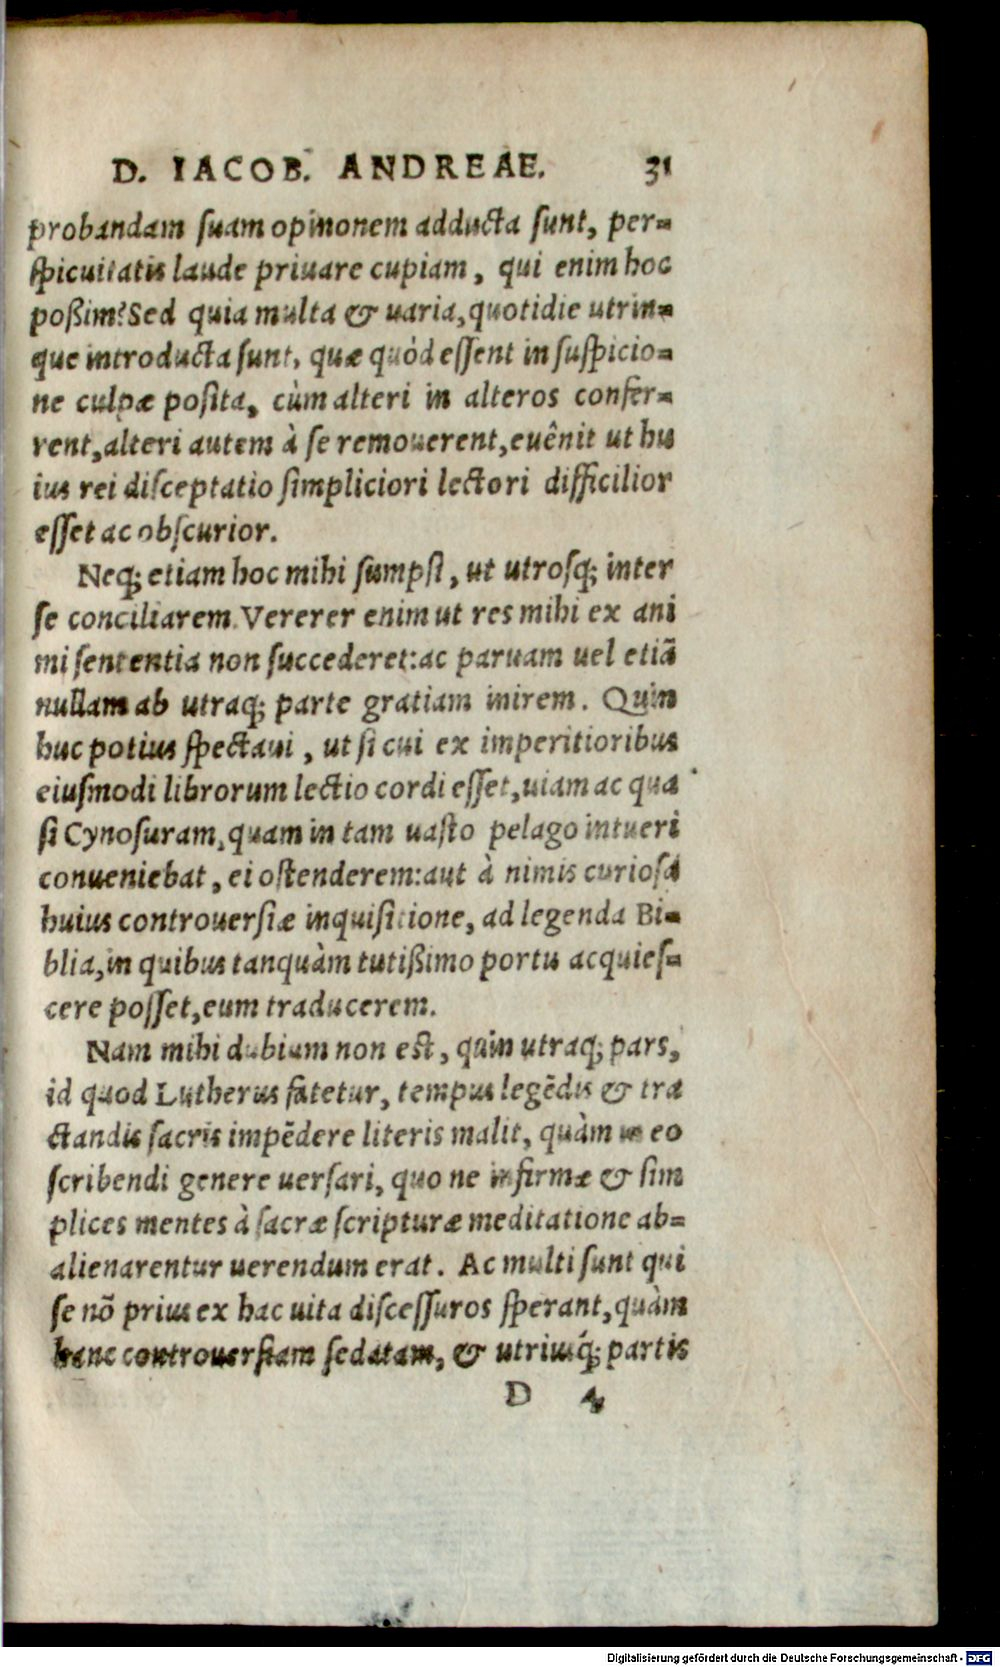 D. IACOB. ANDREAE. 31
probandam suam opinonem adducta sunt, per-
spicuitatis laude priuare cupiam, qui enim hoc
poßim? Sed quia multa & uaria, quotidie utrin-
que introducta sunt, quæ quòd essent in suspicio-
ne culpæ posita, cùm alteri in alteros confer-
rent, alteri autem à se remouerent, euênit ut hu
ius rei disceptatio simpliciori lectori difficilior
esset ac obscurior.
Neq; etiam hoc mihi sumpsi, ut utrosq; inter
se conciliarem. Vererer enim ut res mihi ex ani
mi sententia non succederet: ac paruam uel etiã
nullam ab utraq; parte gratiam inirem. Quin
huc potius spectaui, ut si cui ex imperitioribus
eiusmodi librorum lectio cordi esset, uiam ac qua
si Cynosuram, quam in tam uasto pelago intueri
conueniebat, ei ostenderem: aut à nimis curiosa
huius controuersiæ inquisitione, ad legenda Bi-
blia, in quibus tanquàm tutißimo portu acquies-
cere posset, eum traducerem.
Nam mihi dubium non est, quin utraq; pars,
id quod Lutherus fatetur, tempus legẽdis & tra
ctandis sacris impẽdere literis malit, quàm in eo
scribendi genere uersari, quo ne infirmæ & sim
plices mentes à sacræ scripturæ meditatione ab-
alienarentur uerendum erat. Ac multi sunt qui
se nõ prius ex hac uita discessuros sperant, quàm
hanc controuersiam sedatam, & utriusq́; partis
D 4
Digitalisierung gefördert durch die Deutsche Forschungsgemeinschaft - DFG